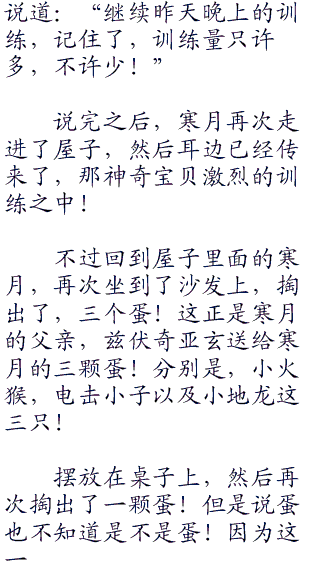 说道：“继续昨天晚上的训
练，记住了，训练量只许
多，不许少！”
说完之后，寒月再次走
进了屋子，然后耳边已经传
来了，那神奇宝贝激烈的训
练之中！
不过回到屋子里面的寒
月，再次坐到了沙发上，掏
出了，三个蛋！这正是寒月
的父亲，兹伏奇亚玄送给寒
月的三颗蛋！分别是，小火
猴，电击小子以及小地龙这
三只！
摆放在桌子上，然后再
次掏出了一颗蛋！但是说蛋
也不知道是不是蛋！因为这
一